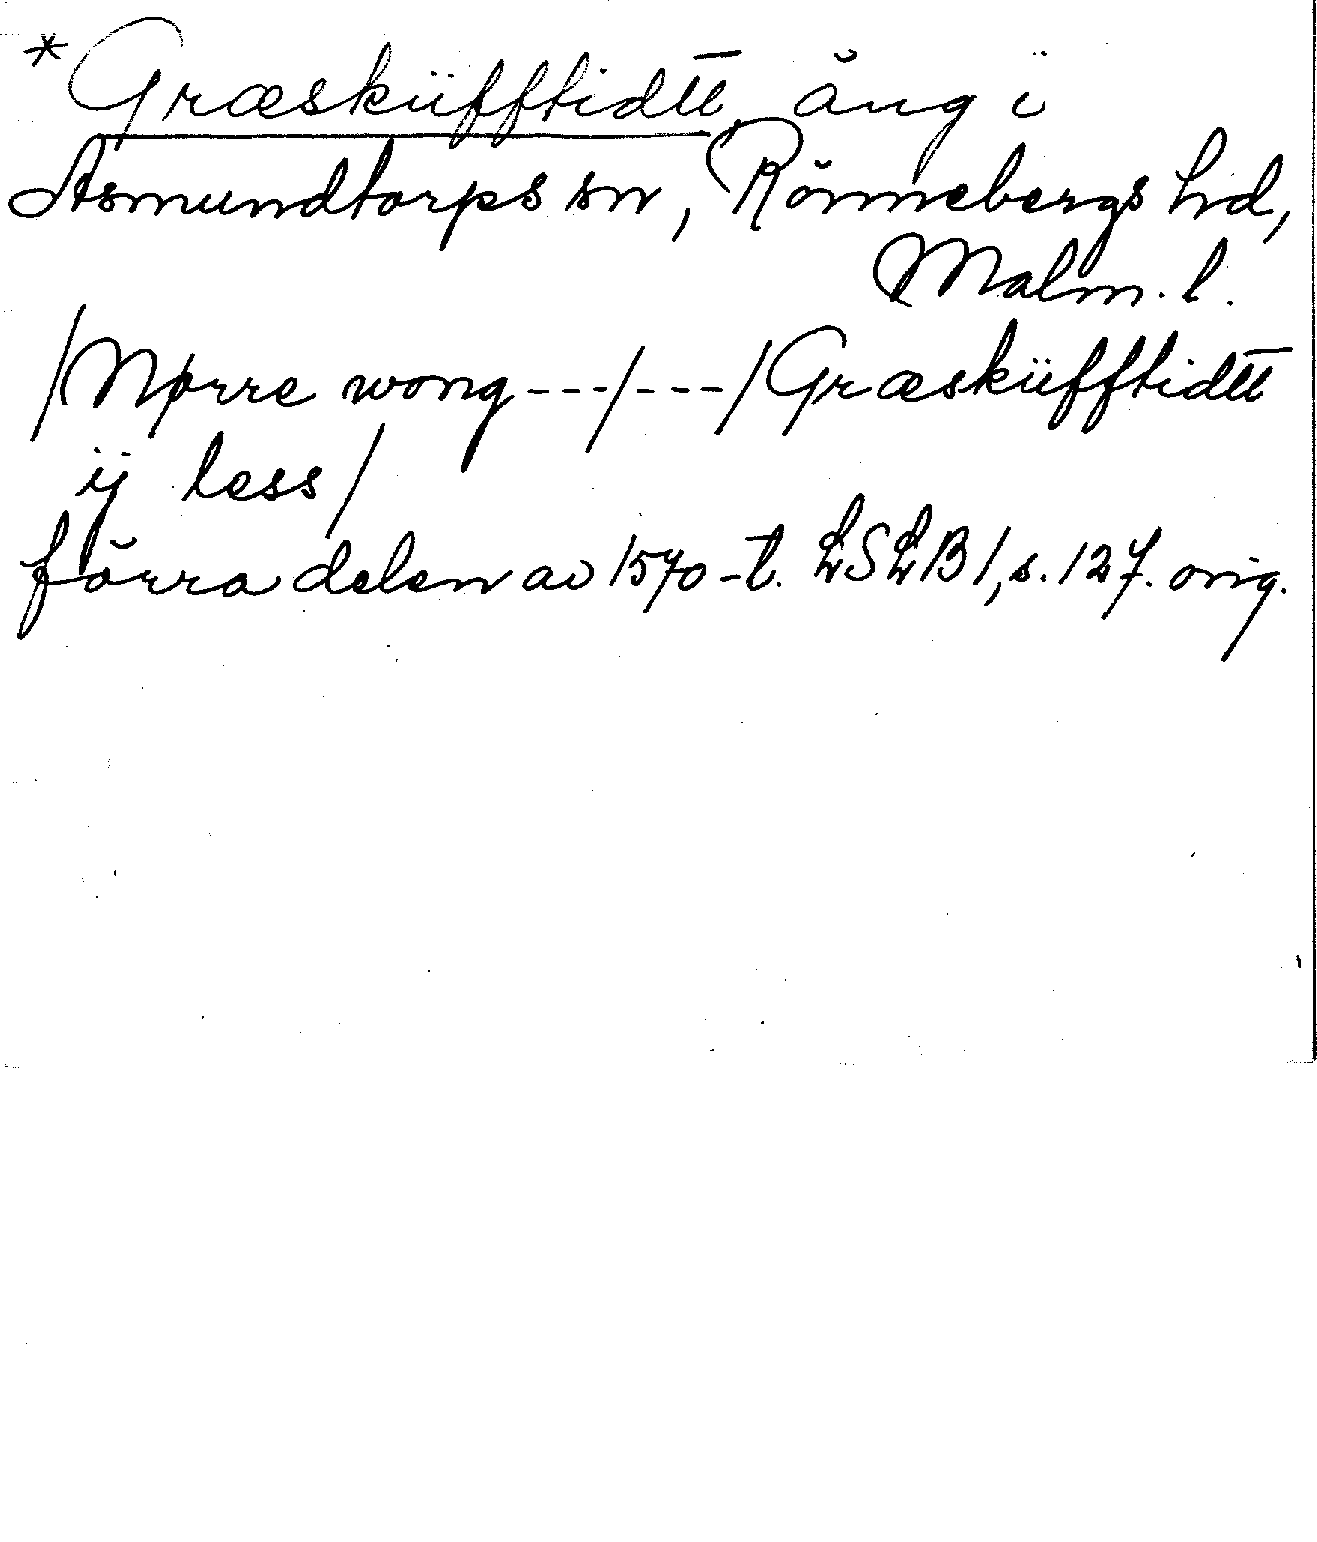 *Græsküfftidtt, äng i
Asmundtorps sn, Rönnebergs hd,
Malm. l.
/Nørre wong ---/---/Græsküfftidtt
ij less/
förra delen av 1570-t. LSLB 1, s. 127. orig.